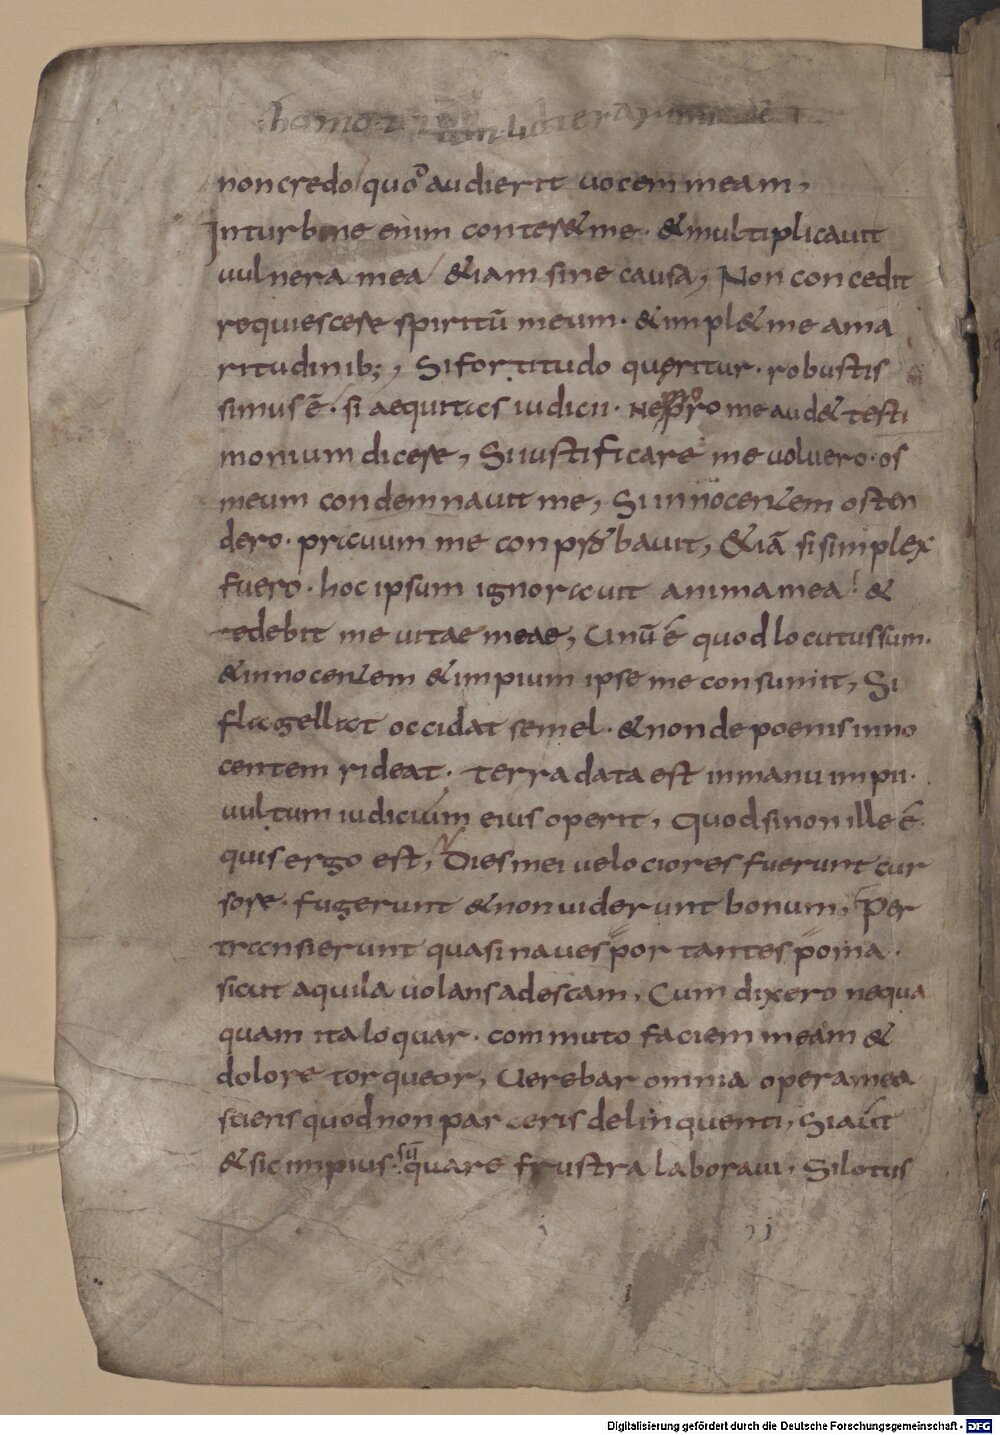 homo
non credo quoᵒ audierit uocem meam,
Inturbine enim conteret me· & multiplicauit
uulnera mea &iam sine causa, Non concedit
requiescere spiritū meum· & impl& me ama
ritudinib;, Si fortitudo queritur· robustis
simus ē· si aequitas iudicii· nepro me aud& testi
monium dicere, Si iustificare me uoluero· os
meum condemnauit me, Si innocentem osten
dero· prauum me conprobauit, &iā si simplex
fuero· hoc ipsum ignorauit anima mea· &
tedebit me uitae meae, Unū ē quod locutus sum·
& innocentem & impium ipse me consumit, Si
flagellat occidat semel· & non de poenis inno
centem rideat· terra data est in manu impii·
uultum iudicium eius operit, Quod si non ille ē
quis ergo est, Dies mei uelociores fuerunt cur
sore· fugerunt & non uiderunt bonum, Per
transierunt quasi naues portantes poma·
sicut aquila uolans ad escam, Cum dixero nequa
quam ita loquar· commuto faciem meam &
dolore torqueor, Uerebar omnia opera mea
sciens quod non parceris delinquenti, Si aut
& sic impius sū quare frustra laboraui, Si lotus
Digitalisierung gefördert durch die Deutsche Forschungsgemeinschaft - DFG